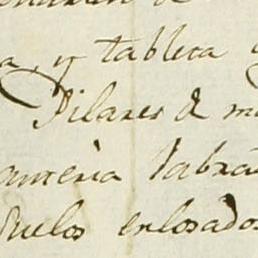 a, y tablera
Pilares de m
antería labra
Suelos enlosados